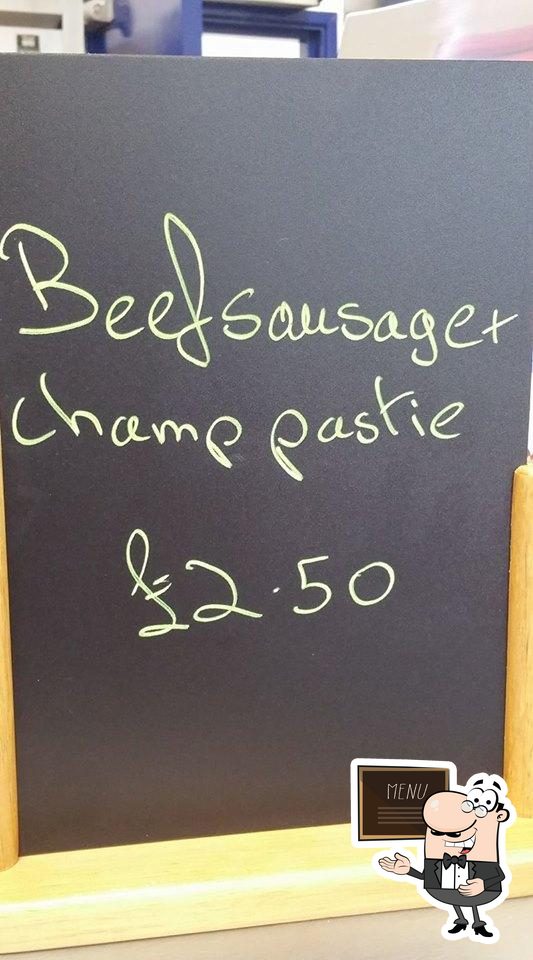 Beef sausage +
champ pastie
£2.50
MENU